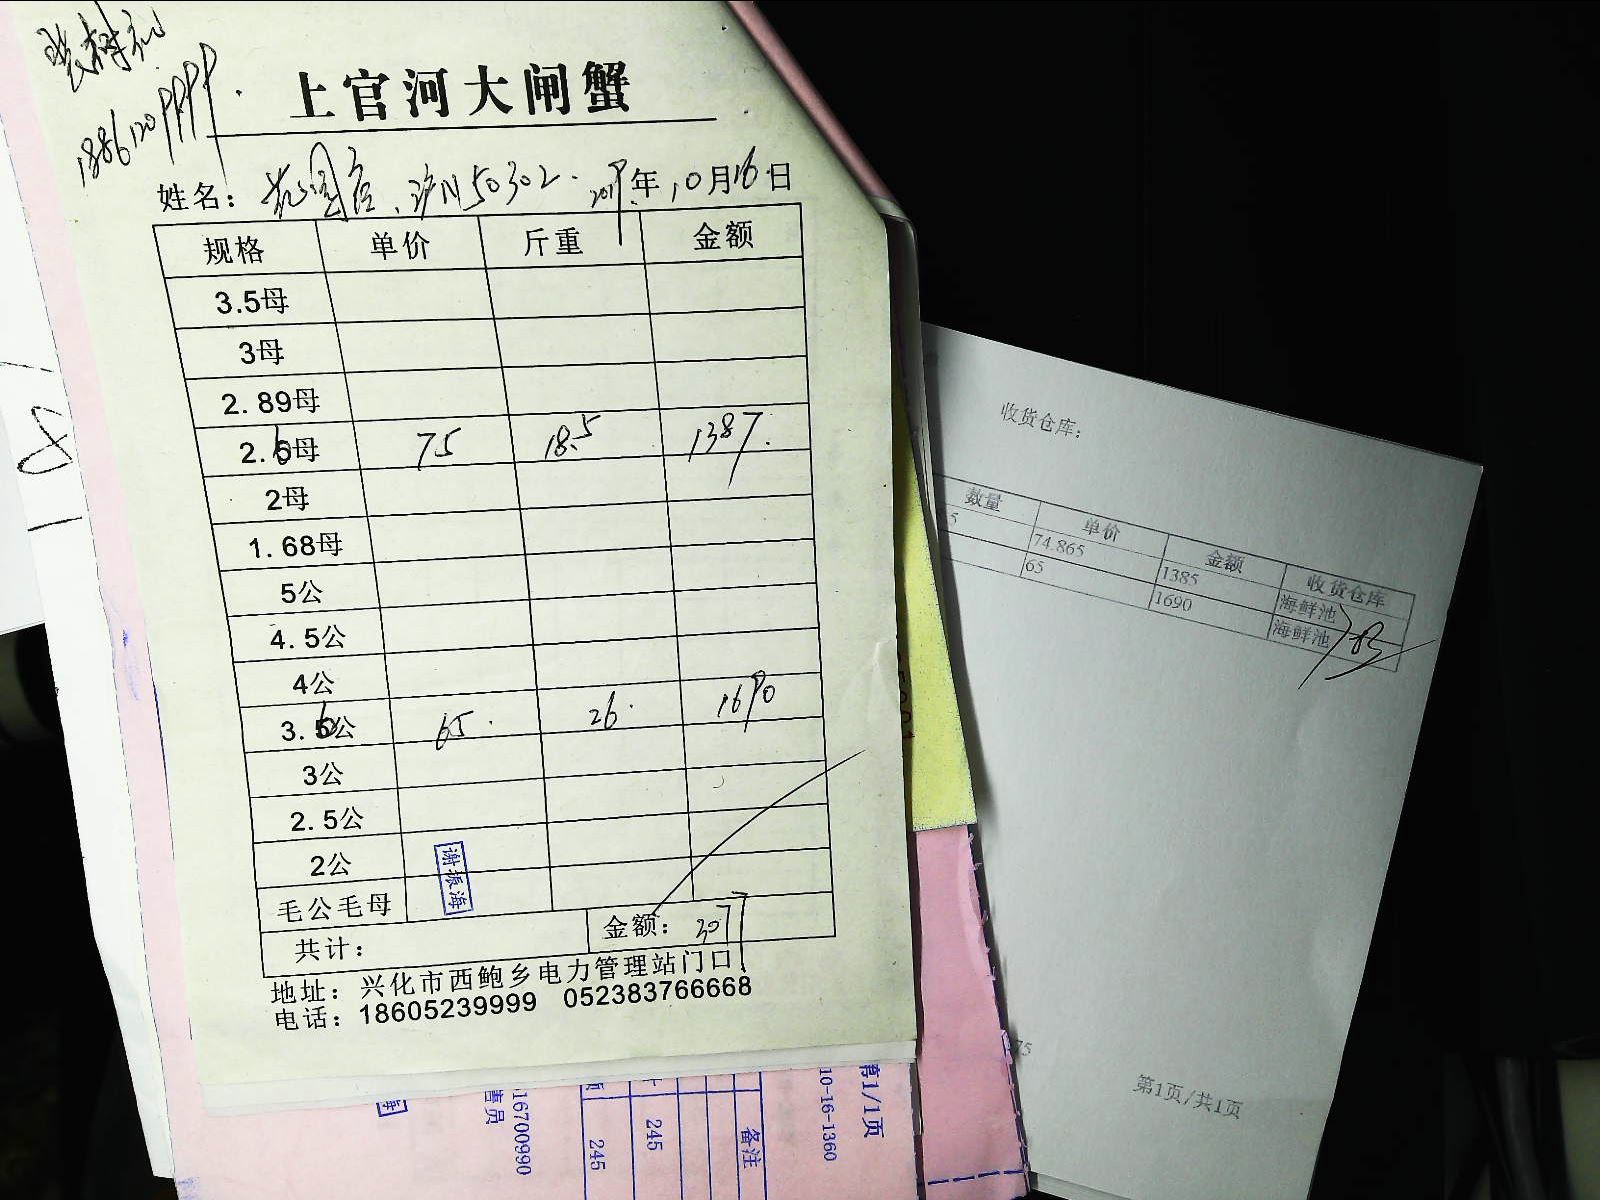 上官河大闸蟹
姓名： 沪N50302. 2019年10月16日
规格 单价 斤重 金额
3.5母
3母
2.89母
2.6母 75 18.5 1387.
2母
1.68母
5公
4.5公
4公
3.6公 65. 26. 1690
3公
2.5公
2公
毛公毛母
谢振海
共计： 金额：3077
地址：兴化市西鲍乡电力管理站门口
电话：18605239999 052383766668
收货仓库:
数量 单价 金额 收货仓库
74.865 1385 海鲜池
65 1690 海鲜池
75
第1页/共1页
第1/1页
10-16-1360
备注
245
245
16700990
售员
海
18